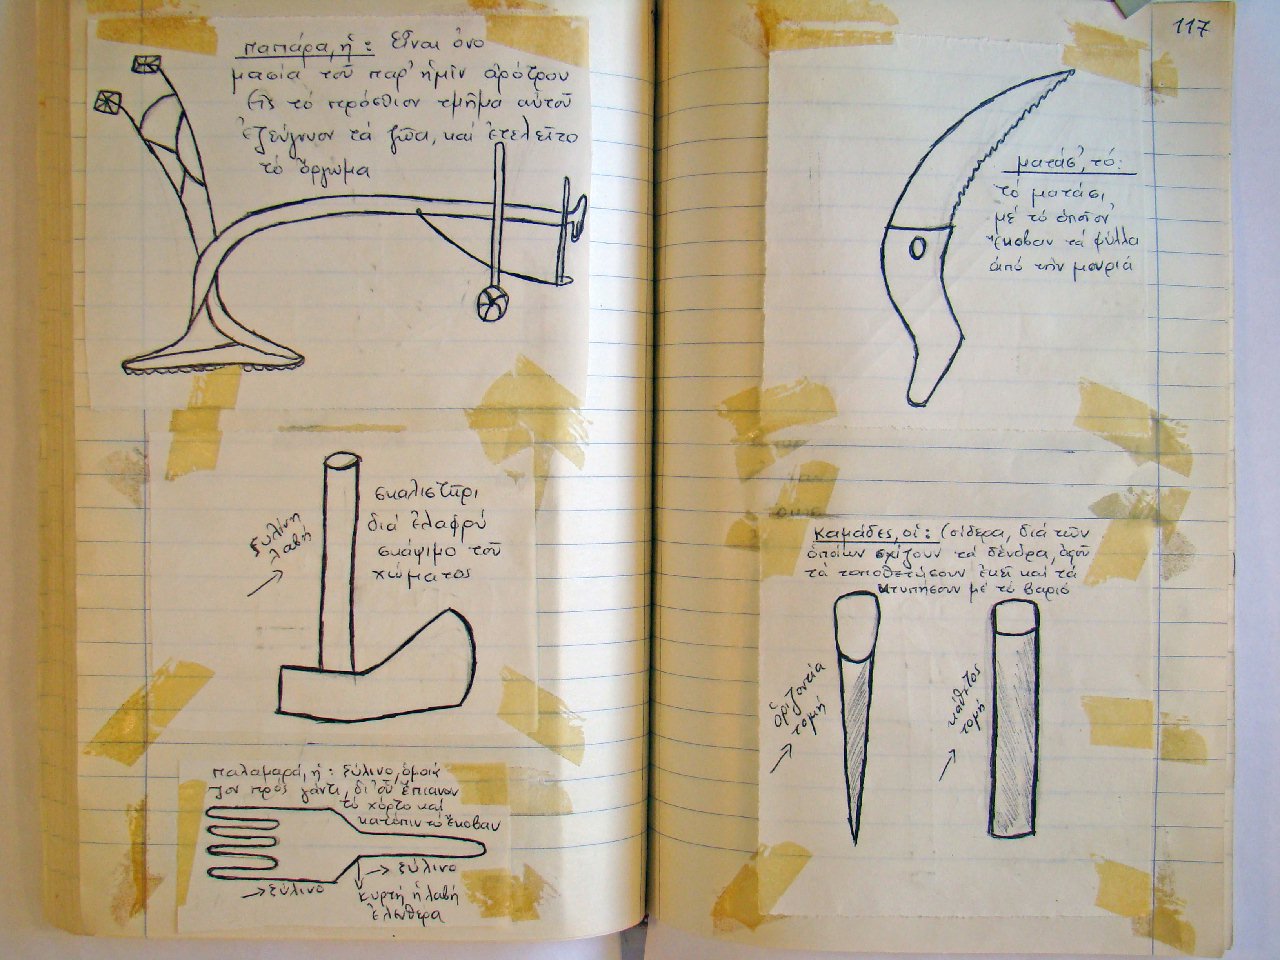 παπάρα, ἡ: Εἶναι ὀνο
μασία τοῦ παρ' ἡμῖν ἀρότρου
Εἰς τό πρόσθιον τμῆμα αὐτοῦ
ἐζεύγνυον τά ζῶα, καί ἐτελεῖτο
τό ὄργωμα
σκαλιστῆρι
διά ἐλαφρύ
σκάψιμο τοῦ
χώματος
ξυλίνη
λαβή
παλαμαρά, ἡ: ξύλινο, ὁμοιά
ζον πρός γάντι, δι' οὗ ἔπιανον
τό χόρτο καί
κατόπιν τό ἔκοβαν
ξύλινο
ξύλινο
κυρτή ἡ λαβή
ἐλευθέρα
117
ματάσ', τό:
τό ματάσι,
μέ τό ὁποῖον
ἔκοβαν τά φύλλα
ἀπό τήν μουριά
Καμάδες, οἱ: (σίδερα, διά τῶν
ὁποίων σχίζουν τά δένδρα, ἀφοῦ
τά τοποθετήσουν ἐκεῖ καί τά
κτυπήσουν μέ τό βαριό
ὁριζοντία
τομή
κάθετος
τομή